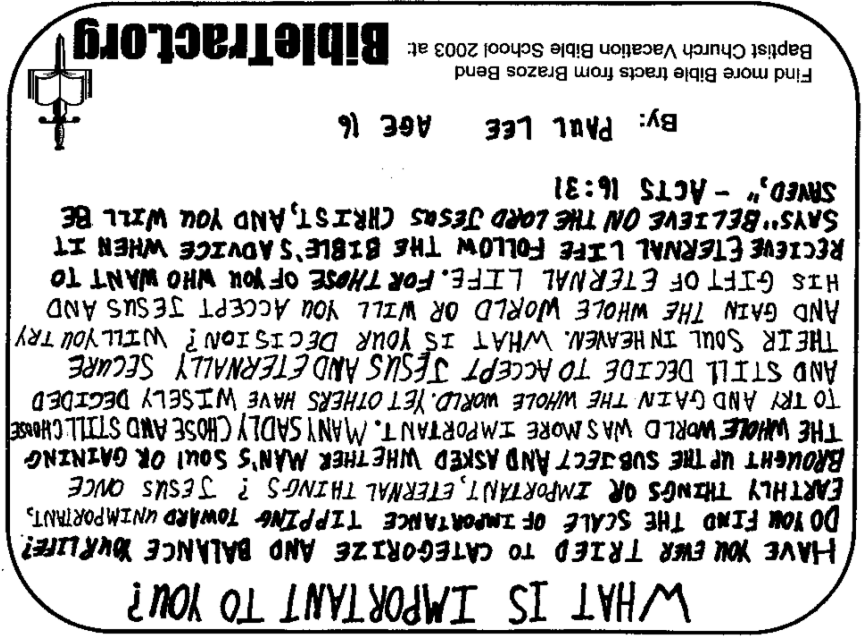 WHAT IS IMPORTANT TO YOU?
HAVE YOU EVER TRIED TO CATEGORIZE AND BALANCE YOUR LIFE?
DO YOU FIND THE SCALE OF IMPORTANCE TIPPING TOWARD UNIMPORTANT,
EARTHLY THINGS OR IMPORTANT, ETERNAL THINGS? JESUS ONCE
BROUGHT UP THE SUBJECT AND ASKED WHETHER MAN'S SOUL OR GAINING
THE WHOLE WORLD WAS MORE IMPORTANT. MANY SADLY CHOSE AND STILL CHOOSE
TO TRY AND GAIN THE WHOLE WORLD. YET OTHERS HAVE WISELY DECIDED
AND STILL DECIDE TO ACCEPT JESUS AND ETERNALLY SECURE
THEIR SOUL IN HEAVEN. WHAT IS YOUR DECISION? WILL YOU TRY
AND GAIN THE WHOLE WORLD OR WILL YOU ACCEPT JESUS AND
HIS GIFT OF ETERNAL LIFE. FOR THOSE OF YOU WHO WANT TO
RECIEVE ETERNAL LIFE FOLLOW THE BIBLE'S ADVICE WHEN IT
SAYS "BELIEVE ON THE LORD JESUS CHRIST, AND YOU WILL BE
SAVED," - ACTS 16:31
By: PAUL LEE AGE 16
Find more Bible tracts from Brazos Bend
Baptist Church Vacation Bible School 2003 at: BibleTract.org